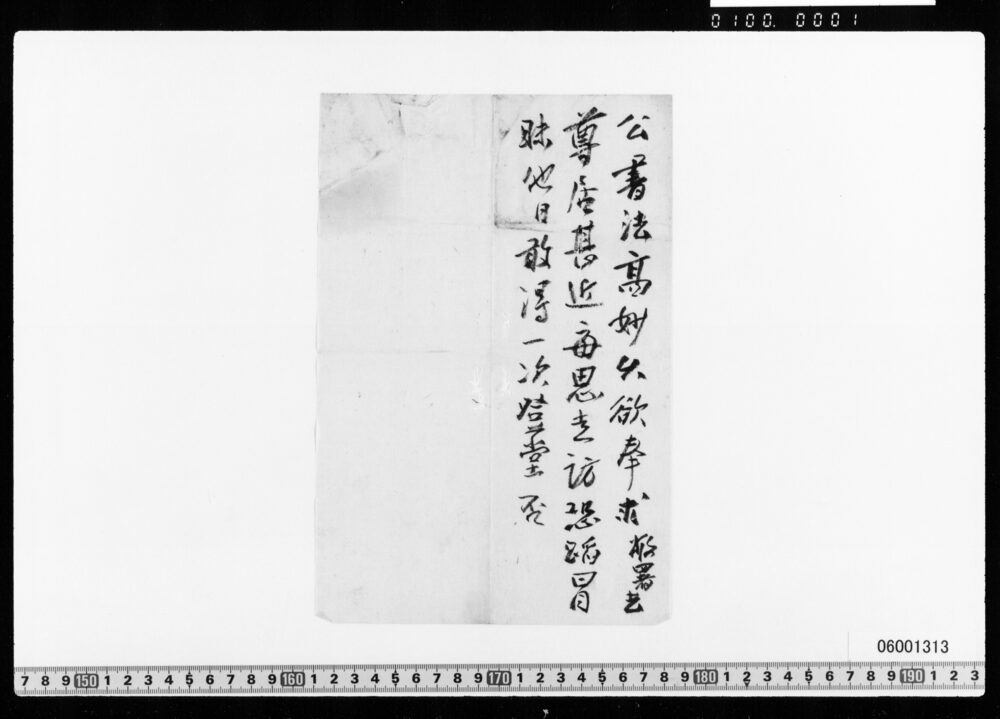 0100.0001
公書法高妙久欲奉求敝署去
尊居甚近每思走訪恐蹈冒
昧他日敢得一次堂否
06001313
7 8 9 150 1 2 3 4 5 6 7 8 9 160 1 2 3 4 5 6 7 8 9 170 1 2 3 4 5 6 7 8 9 180 1 2 3 4 5 6 7 8 9 190 1 2 3